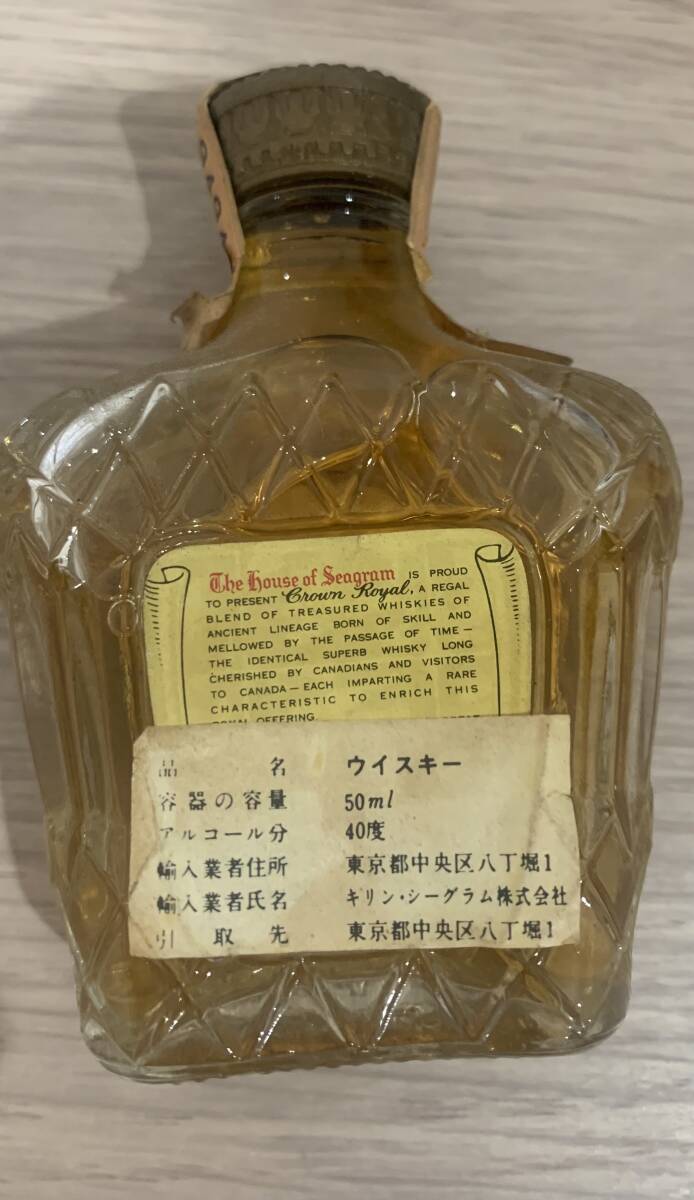 The House of Seagram IS PROUD
TO PRESENT Crown Royal, A REGAL
BLEND OF TREASURED WHISKIES OF
ANCIENT LINEAGE BORN OF SKILL AND
MELLOWED BY THE PASSAGE OF TIME—
THE IDENTICAL SUPERB WHISKY LONG
CHERISHED BY CANADIANS AND VISITORS
TO CANADA—EACH IMPARTING A RARE
CHARACTERISTIC TO ENRICH THIS
ROYAL OFFERING.
品名 ウイスキー
容器の容量 50ml
アルコール分 40度
輸入業者住所 東京都中央区八丁堀1
輸入業者氏名 キリン・シーグラム株式会社
引取先 東京都中央区八丁堀1